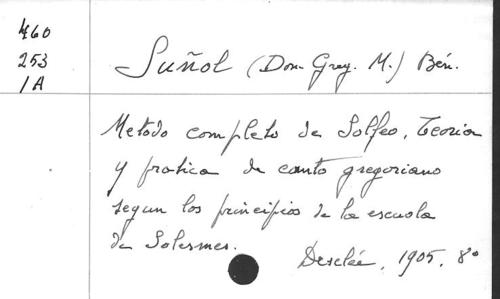 460
253
1A
Suñol (Dom Greg. M.) Bén.
Metodo completo de Solfeo, Teoria
y pratica de canto gregoriano
segun los principios de la escuola
de Solesmes.
Desclée, 1905, 8º